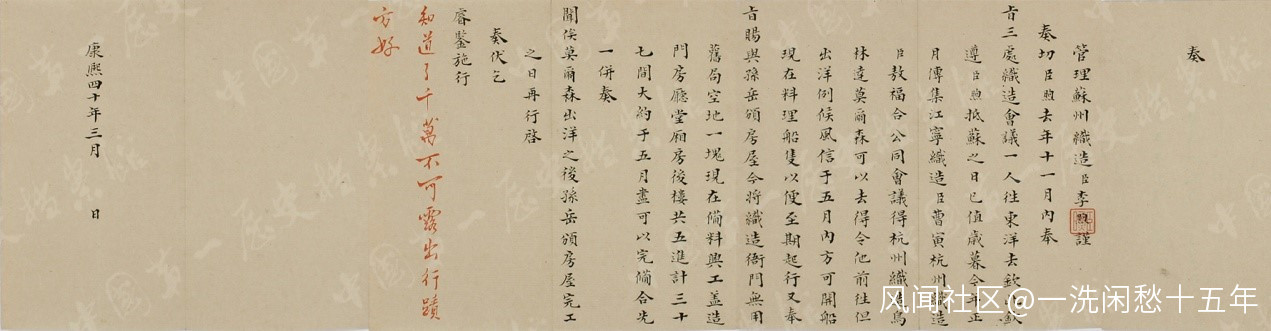 奏
管理蘇州織造臣李煦謹
奏切臣煦去年十一月內奉
旨三處織造會議一人往東洋去欽此欽
遵臣煦抵蘇之日已值歲暮今年正
月傳集江寧織造臣曹寅杭州織造
臣敖福合公同會議得杭州織造烏
林達莫爾森可以去得令他前往但
出洋例候風信于五月內方可開船
現在料理船隻以便至期起行又奉
旨賜與孫岳頒房屋今將織造衙門無用
舊局空地一塊現在備料興工蓋造
門房廳堂廂房後樓共五進計三十
七間大約于五月盡可以完備合先
一併奏
聞俟莫爾森出洋之後孫岳頒房屋完工
之日再行啓
奏伏乞
睿鑒施行
知道了千萬不可露出行蹟
方好
康熙四十年三月 日
风闻社区@一洗闲愁十五年